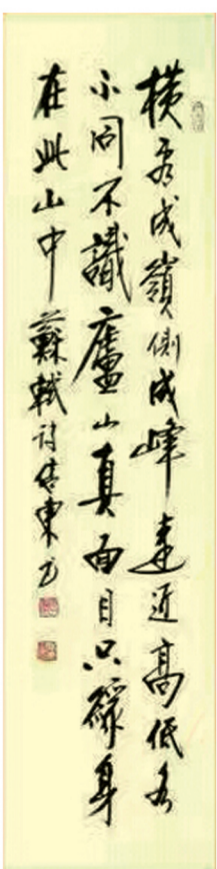 橫看成嶺側成峰遠近高低各
不同不識廬山真面目只緣身
在此山中蘇軾詩東书